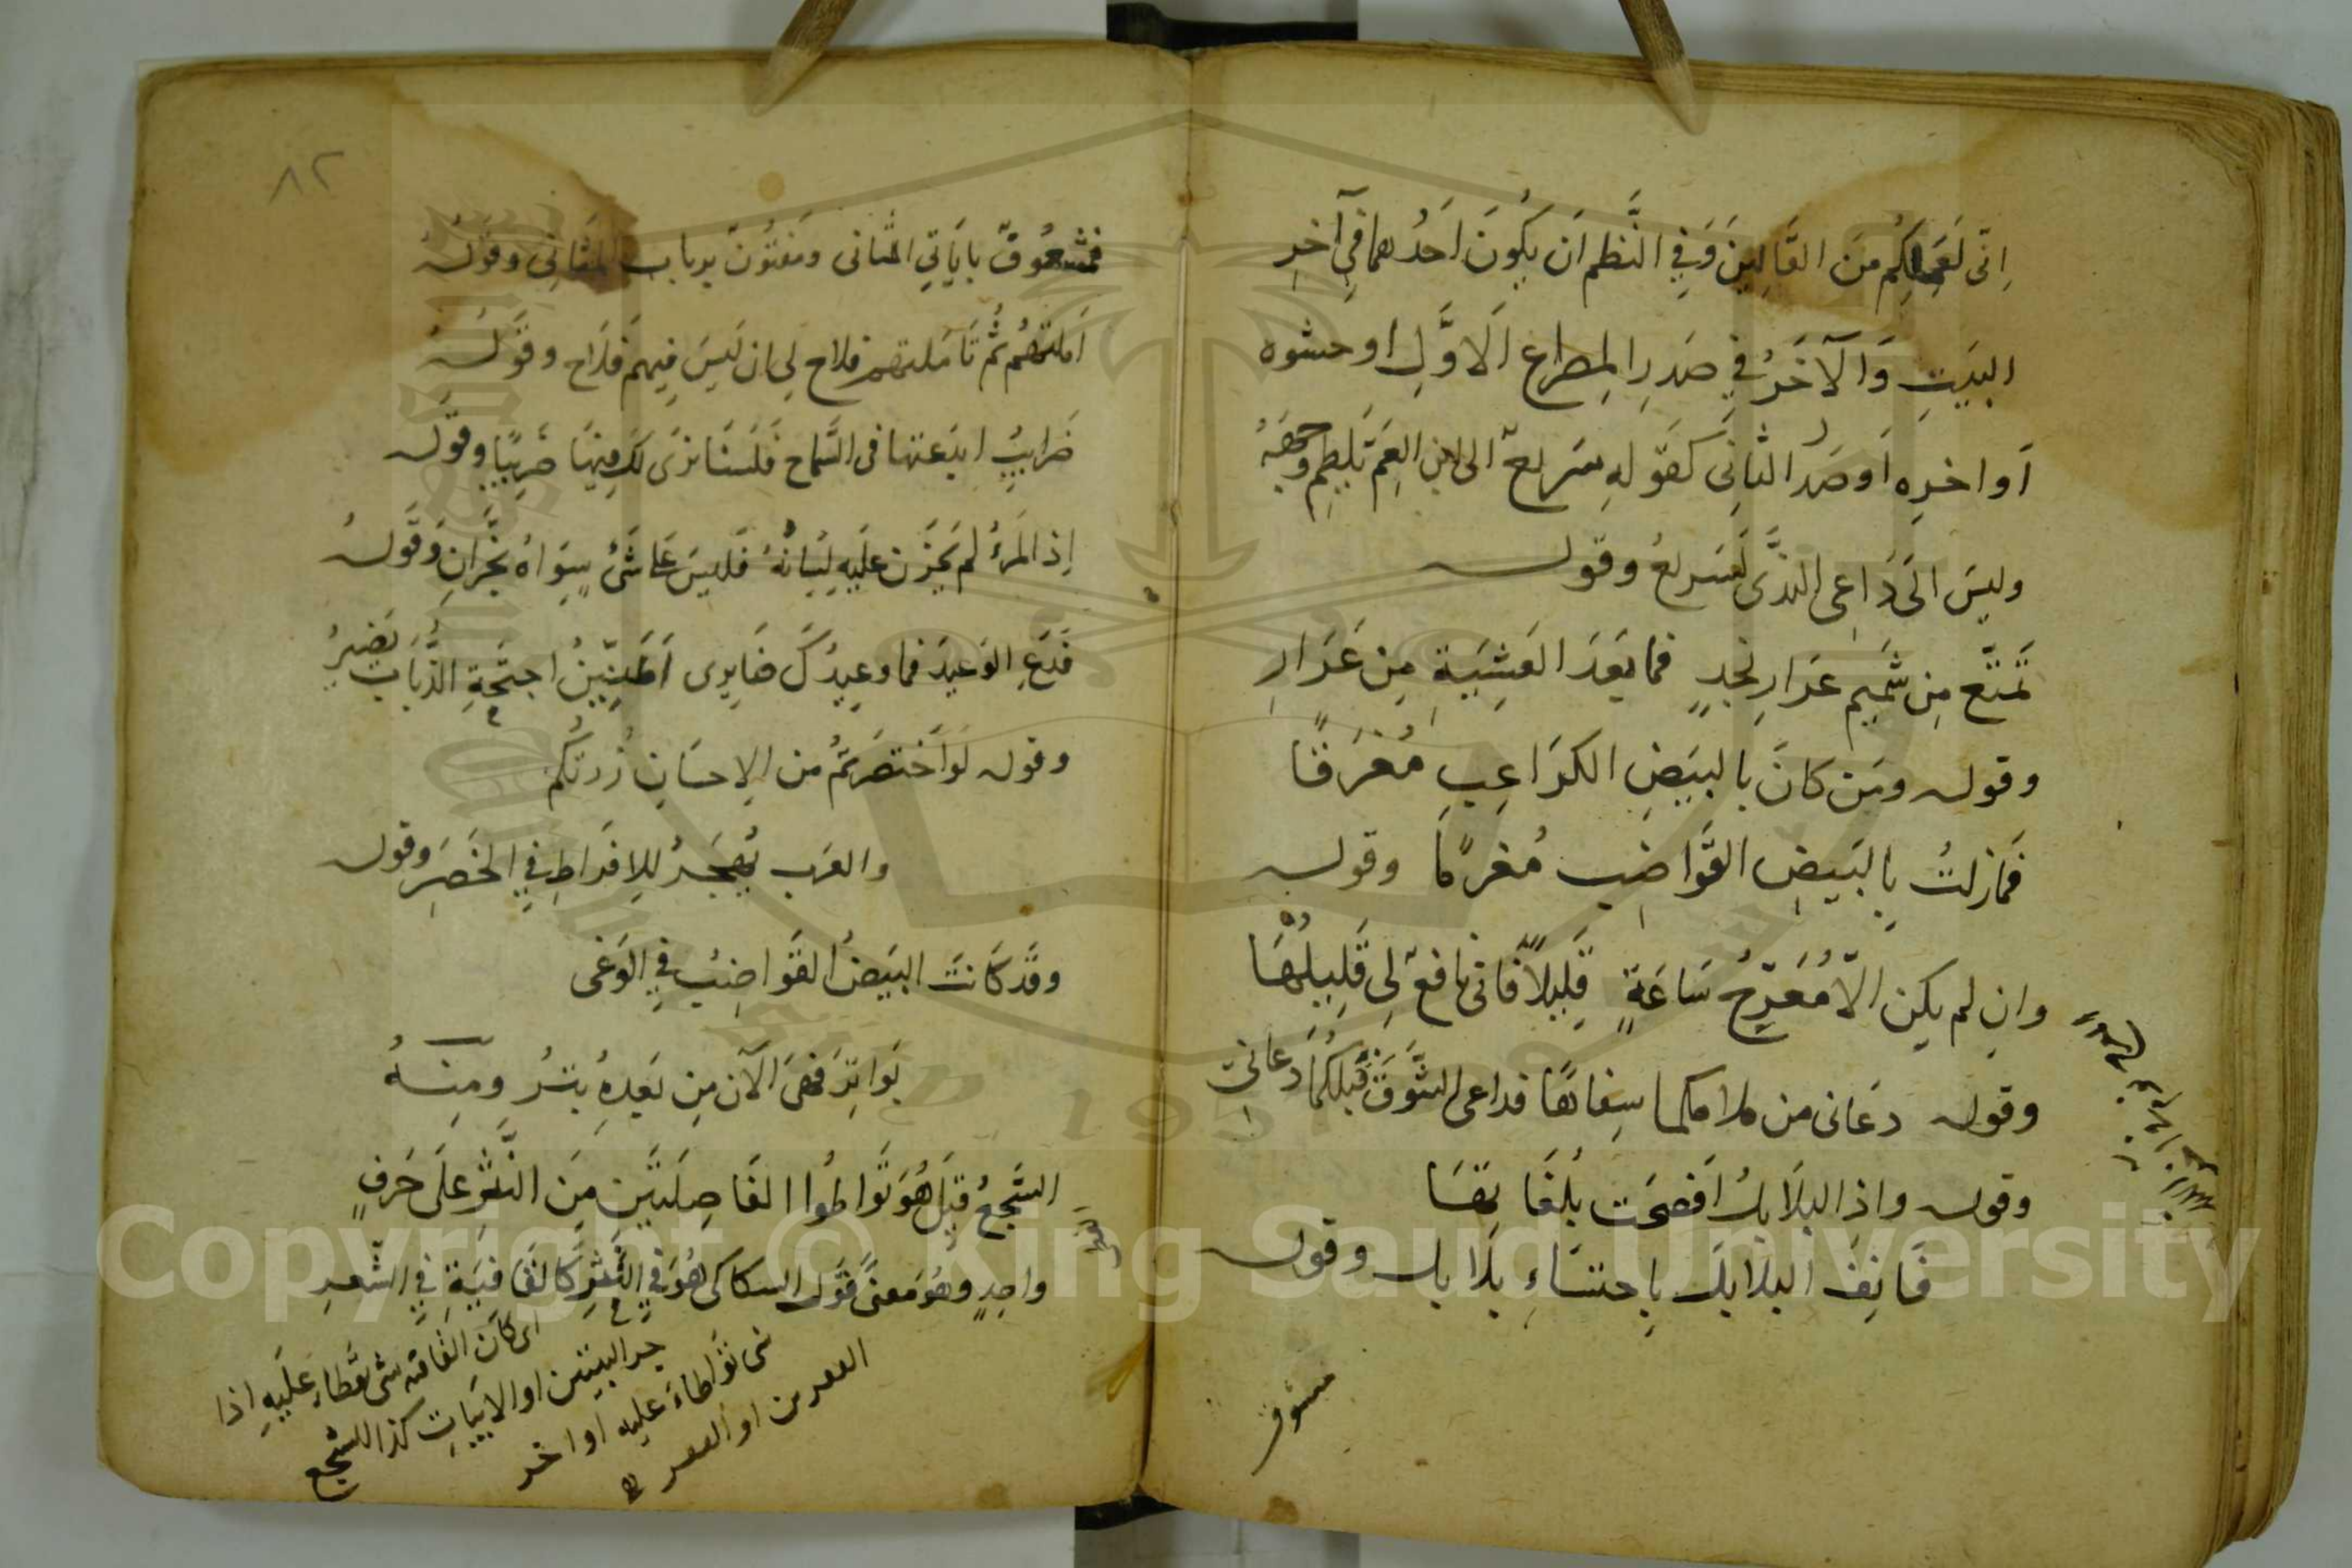 اِنّى لَعَمَلِكُم مِنَ القَالِينَ وَفِي النَّظم اَن يَكُونَ اَحَدُهما فِي آخِرِ
البَيتِ وَالآخَرُ فِي صَدرِ المِصراع الاَوَّلِ او حشوه
اَو اخرِه اَو صَدر الثانِى كَقَولهِ سَرِيعٌ الى ابن العَمّ يَلطِم وجهَهُ
وليسَ الَى دَاعِى النَّدَى بسَرِيعُ وقوله
تَمَتَّع مِن شَمِيمِ عَرَارِ نجدٍ فما بَعَدَ العَشِيَةِ مِن عَرَارِ
وقوله ومَن كانَ بالبيَضِ الكَوَاعِبِ مُغرَمًا
فَمازلتُ بِالبَيضِ القَوَاضِب مُغرمًا وقوله
وانِ لم يكِن الاّ مُعَرّجُ سَاعَةٍ قَلِيلاً فانى نافعٌ لِى قَلِيلُهَا
وقوله دعَانى من ملامكما سِفاهًا فداعى الشَّوقِ قَبلَكُمَا دعانى
وقوله واذِ البلاَبلُ اَفصَحَت بلُغَاتِهَا
فَانفِ البلابلَ بِاحتسَاءِ بلاَبل وقوله
فمشعوف
فمَشعُوفٌ بايَاتِ المثانى ومَفتُونٌ برنات المَثانِى وقَولهُ
اَملتهُم ثُمّ تَامّلتهم فلاح لِى ان لَيسَ فِيهم فَلاَح وقَولهُ
ضَرايبُ ابدَعتها فى السَّماح فَلَسنَا نرَى لَكَ فِيهَا ضَرِيبًا وقَوله
اِذ المَرءُ لم يَخزُن عَلَيهِ لِسَانُهُ فَليسَ عَلَى شَىءٍ سِوَاهُ بخَزّانِ وَقَولهُ
فَدَعِ الوَعيدَ فما وعِيدُكَ ضَايرى اَطَنِينُ اجنَحةِ الذُّبَابِ يَضيرُ
وقوله لَو اَختصَرتُم من الاِحسَانِ زُرتكُم
والعَذب يُهجَرُ للِافراطِ فِي الخَصَرِ وقوله
وقَد كَانَت البَيضُ القَوَاضِبُ فِي الوَغى
بَوَاتِرَ فَهىَ الآن مِن بَعدِهِ بتـرُ ومِنـهُ
السَّجعُ قِيلَ هُوَ تَوَاطُوا الفَاصِلَتَين مِنَ النَّثرِ عَلَى حَرفٍ
واحدٍ وهُوَ مَعنى قَول السكاكى هُوَ فِي النَّثرِ كَالقَافِيَةِ فِي الشِّعرِ
اى كَانَ القَافيَه شى تَوَطا عَلَيهِ اذا
خر البيتين او الابيَاتِ كذا السَّجع
شى تَوَاطاءَ عليه اواخر
الفقرتين او الفقر
٨٢